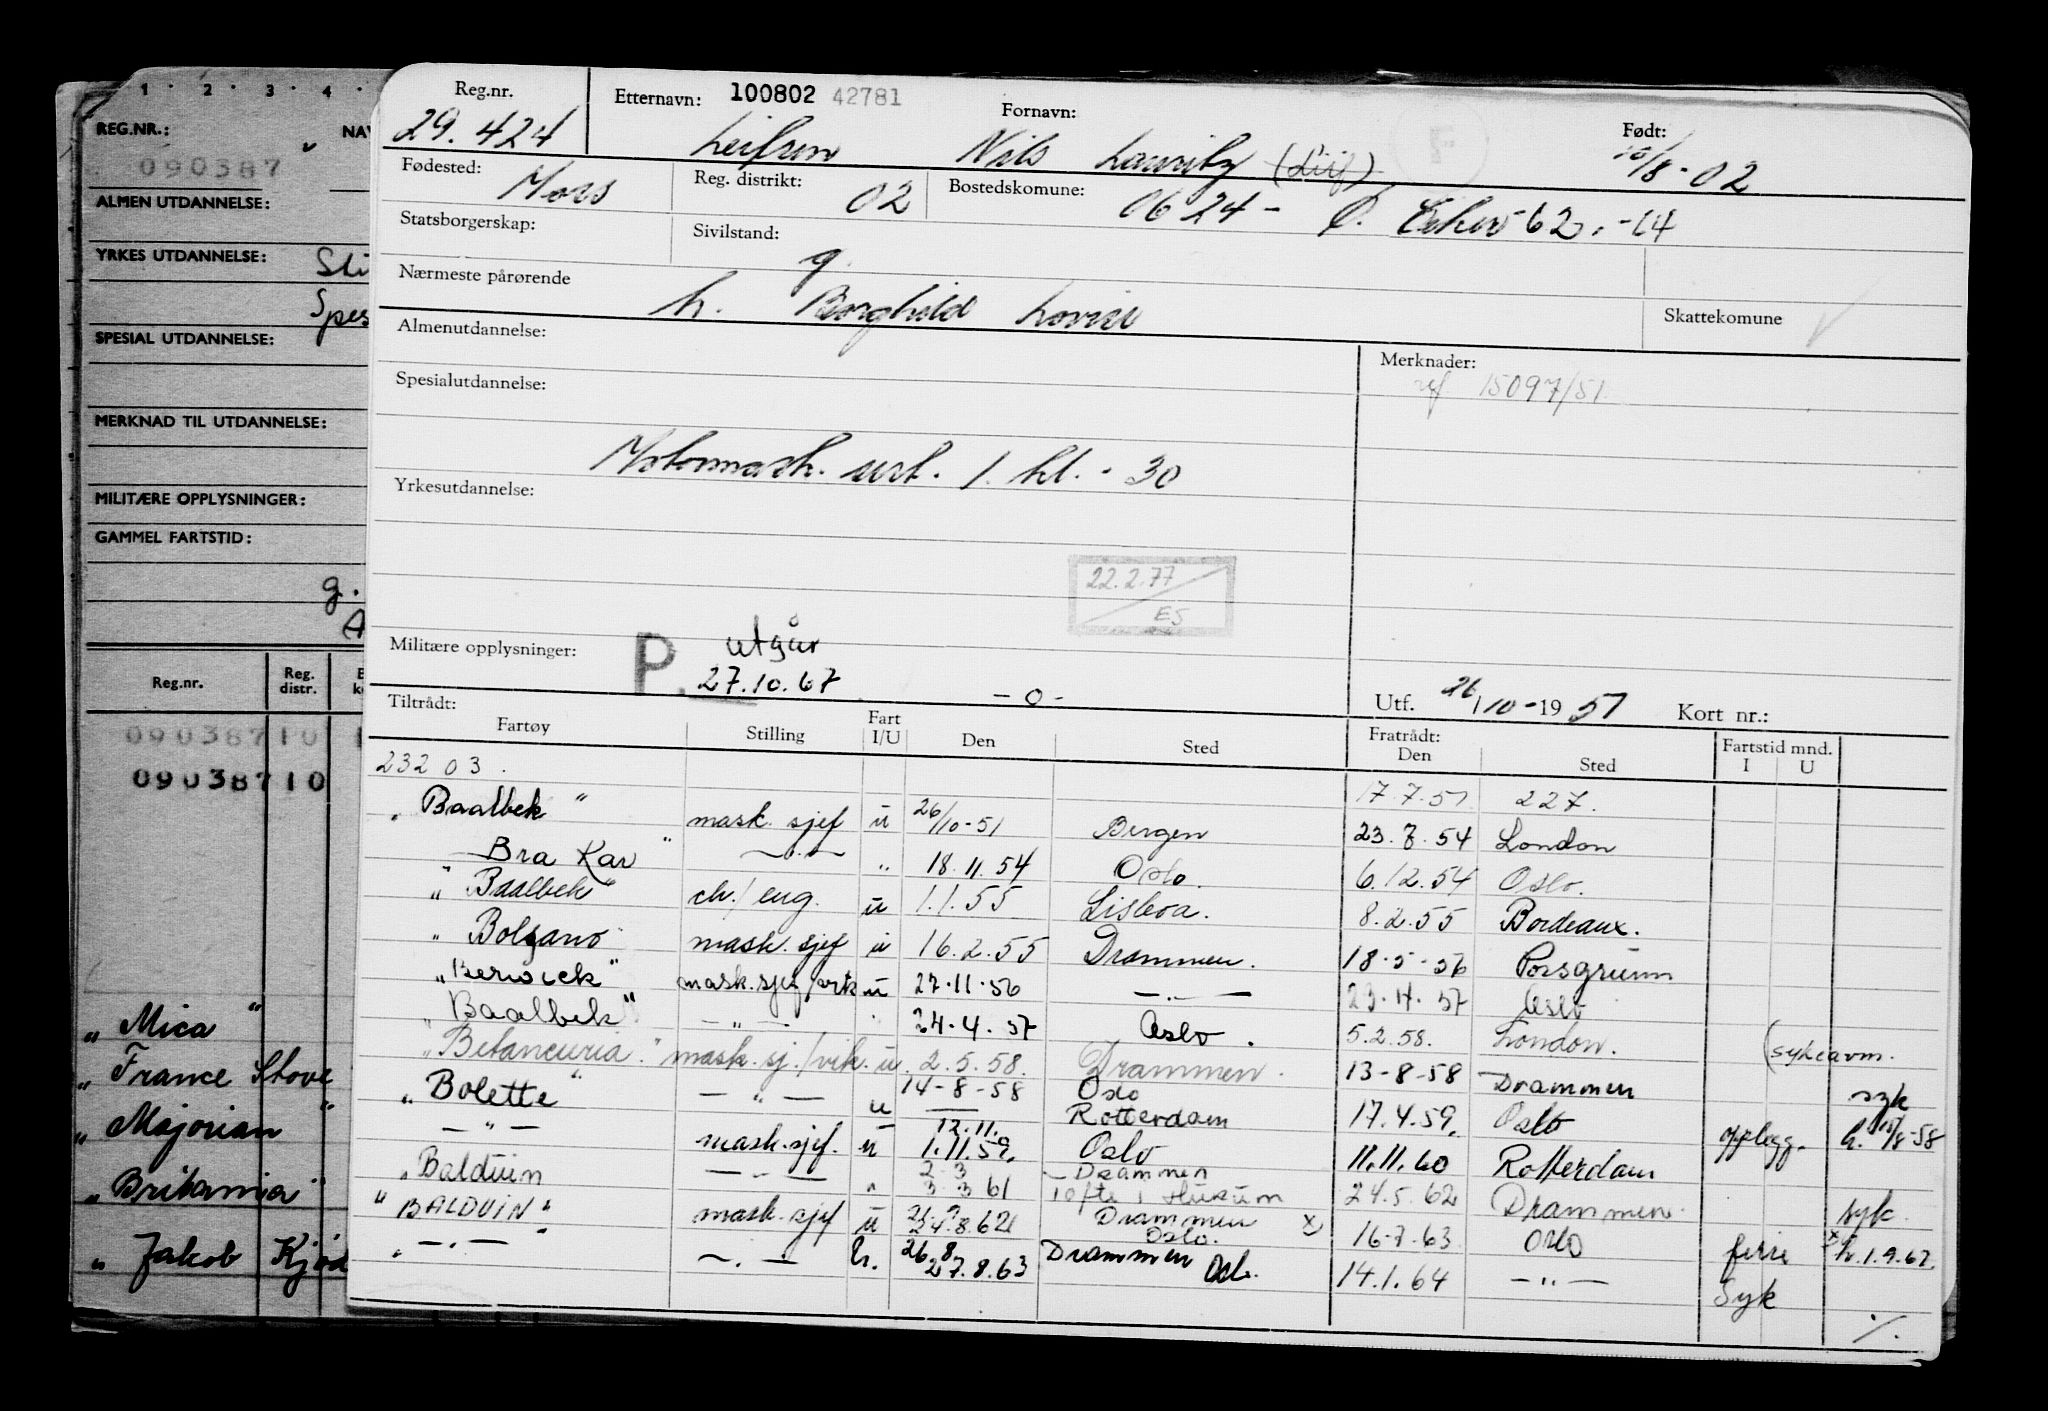 1 · 2 · 3 · 4 ·
REG.NR.: NAV
090387
ALMEN UTDANNELSE:
YRKES UTDANNELSE: Sti
Spes
SPESIAL UTDANNELSE:
MERKNAD TIL UTDANNELSE:
MILITÆRE OPPLYSNINGER:
GAMMEL FARTSTID:
g.
A
Reg.nr. Reg. distr.
09038710
09038710
„ Mica "
„ France Stove
„ Majorian "
„ Britannia "
„ Jakob Kjød
Reg.nr. Etternavn: 100802 42781 Fornavn: Født:
29.424 Leifsen Nils Lauritz (Liif) 10/8-02
Fødested: Moss Reg. distrikt: 02 Bostedskomune: 0624 - Ø. Eiker 62.-64
Statsborgerskap: Sivilstand: g.
Nærmeste pårørende h. Borghild Lovise Skattekomune
Almenutdannelse: Merknader:
Spesialutdannelse: ref. 15097/51
Motormask. sert. 1. kl. - 30
Yrkesutdannelse:
22.2.77
ES
Militære opplysninger: P. utgår
27.10.67 - o - Utf. 26/10-1951 Kort nr.:
Tiltrådt: Fratrådt:
Fartøy Stilling Fart I/U Den Sted Den Sted Fartstid mnd. I U
23203. 17.7.51 227.
„ Baalbek " mask. sjef u 26/10-51 Bergen 23.7.54 London
Bra Kar " — „ — „ 18.11.54 Oslo. 6.12.54 Oslo.
„ Baalbek " ch./eng. u 1.1.55 Lisboa. 8.2.55 Bordeaux.
„ Bolzano " mask. sjef u 16.2.55 Drammen. 18-5-56 Porsgrunn
„ Berwick " mask.sjef/vik u 27.11.56 — „ — 23.4.57 Oslo
„ Baalbek " — „ — 24.4.57 Oslo. 5.2.58. London. (sykeavm.
„ Betancuria " mask.sj./vik. u. 2.5.58. Drammen. 13-8-58 Drammen syk
„ Bolette " — „ — u 14-8-58 Oslo 17.4.59. Oslo opplegg. h. 15/8-58
— „ — mask.sjef. u 12.11. 1.11.59. Rotterdam Oslo 11.11.60 Rotterdam
„ Balduin — „ — „ 2-3 3.3 61 Drammen Tofte i Hurum 24.5.62 Drammen. syk.
" BALDUIN " mask.sjef u 24.8.62 Drammen Oslo. x) 16-7.63 Oslo ferie x h.1.9.62.
„ — „ — — „ — h. 26.8 27.8.63 Drammen Oslo. 14.1.64 — „ — Syk
%.